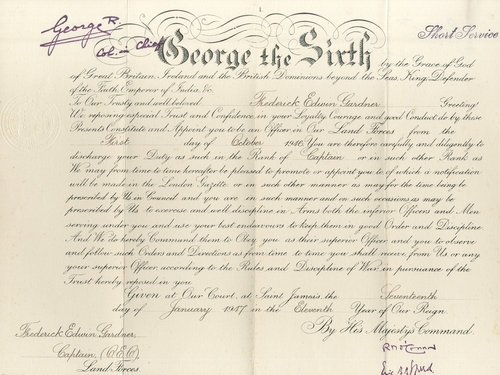 George R.
Col. in Chief
Short Service
George the Sixth
by the Grace of God
of Great Britain, Ireland and the British Dominions beyond the Seas, King, Defender
of the Faith, Emperor of India, &c.
To Our Trusty and well beloved Frederick Edwin Gardner Greeting
We reposing especial Trust and Confidence in your Loyalty Courage and good Conduct do by these
Presents Constitute and Appoint you to be an Officer in Our Land Forces from the
First day of October 1946. You are therefore carefully and diligently to
discharge your Duty as such in the Rank of Captain or in such other Rank as
We may from time to time hereafter be pleased to promote or appoint you to, of which a notification
will be made in the London Gazette or in such other manner as may for the time being be
prescribed by Us in Council and you are in such manner and on such occasions as may be
prescribed by Us to exercise and well discipline in Arms both the inferior Officers and Men
serving under you and use your best endeavours to keep them in good Order and Discipline.
And We do hereby Command them to Obey you as their superior Officer, and you to observe
and follow such Orders and Directions as from time to time you shall receive from Us or any
your superior Officer according to the Rules and Discipline of War in pursuance of the
Trust hereby reposed in you
Given at Our Court, at Saint James's, the Seventeenth
day of January 1947 in the Eleventh Year of Our Reign.
By His Majesty's Command.
Frederick Edwin Gardner
Captain,
Land Forces.